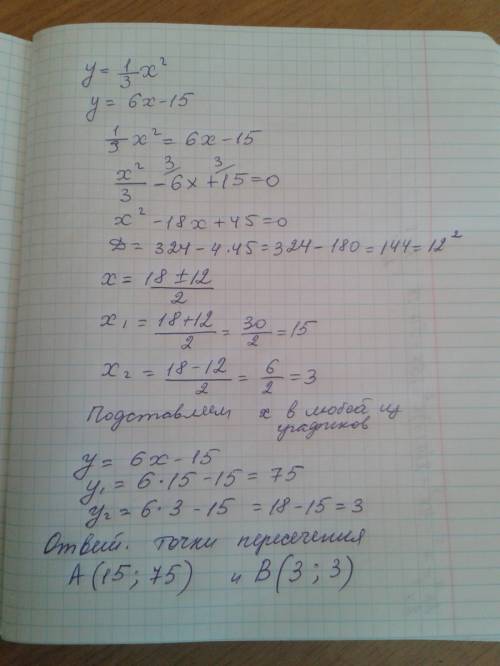 y = 1/3 x²
y = 6x - 15
1/3 x² = 6x - 15
x²/3 - 6x (3/ + 15 (3/ = 0
x² - 18x + 45 = 0
D = 324 - 4·45 = 324 - 180 = 144 = 12²
x = (18 ± 12)/2
x₁ = (18+12)/2 = 30/2 = 15
x₂ = (18-12)/2 = 6/2 = 3
Подставляем x в любой из
графиков
y = 6x - 15
y₁ = 6·15 - 15 = 75
y₂ = 6·3 - 15 = 18 - 15 = 3
Ответ. точки пересечения
A(15; 75) и B(3; 3)